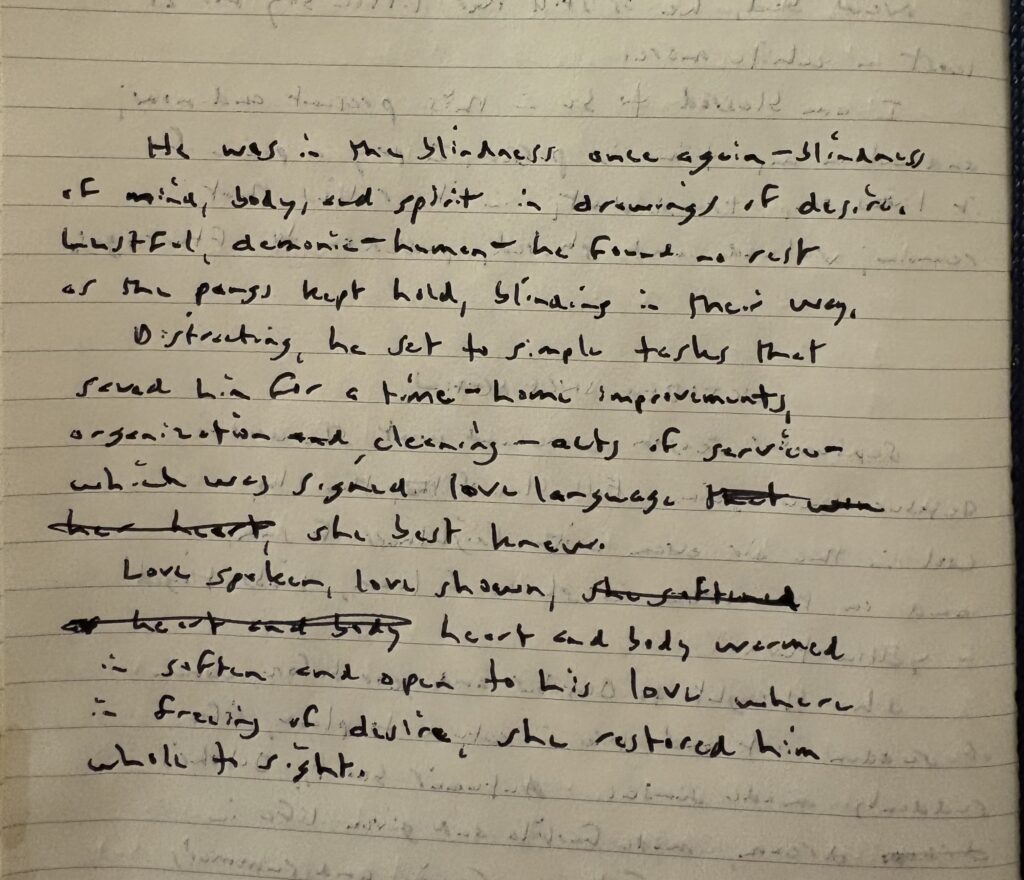 He was in the blindness once again - blindness
of mind, body, and spirit in drawings of desire.
Lustful, demonic - human - he found no rest
as the pangs kept hold, blinding in their way.
Distracting, he set to simple tasks that
saved him for a time - home improvements,
organization and cleaning - acts of service -
which was signed love language that won
her heart, she best knew.
Love spoken, love shown, she softened
heart and body heart and body warmed
in soften and open to his love where
in freeing of desire, she restored him
whole to sight.